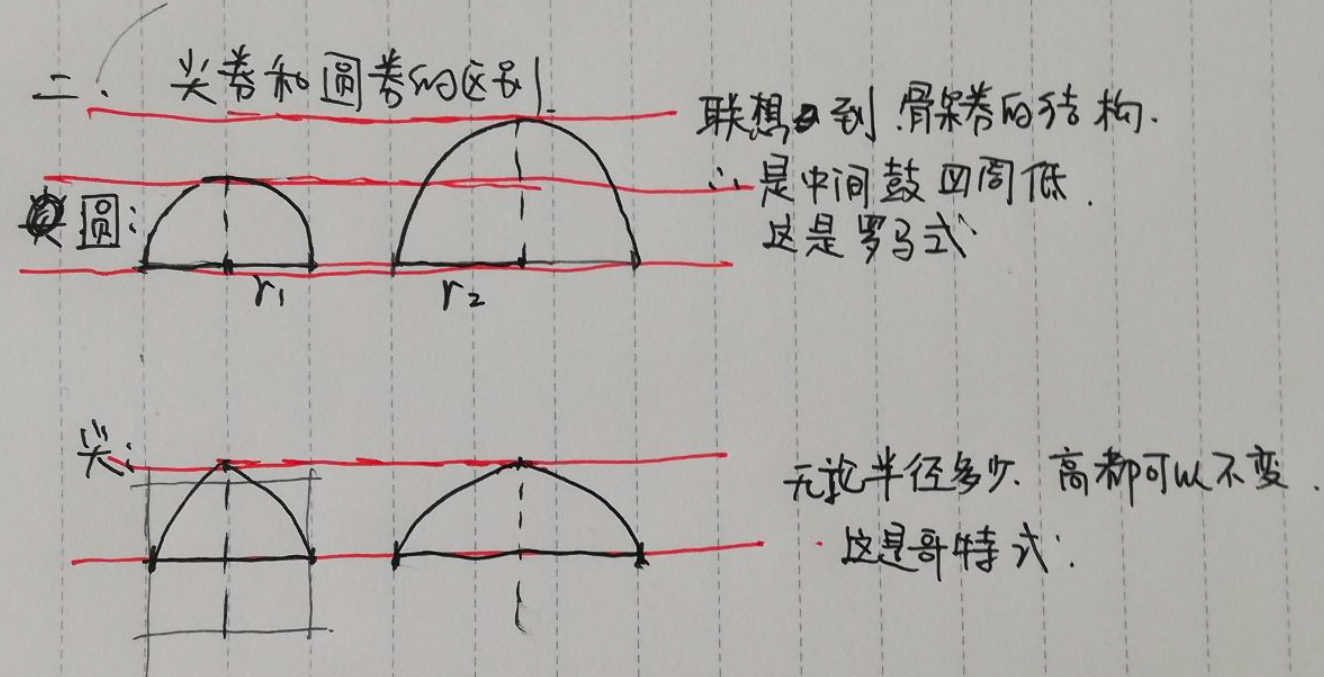 二、尖券和圆券的区别
联想到骨架券的结构.
∴是中间鼓四周低.
这是罗马式
圆:
r₁
r₂
尖:
无论半径多少.高都可以不变.
这是哥特式.